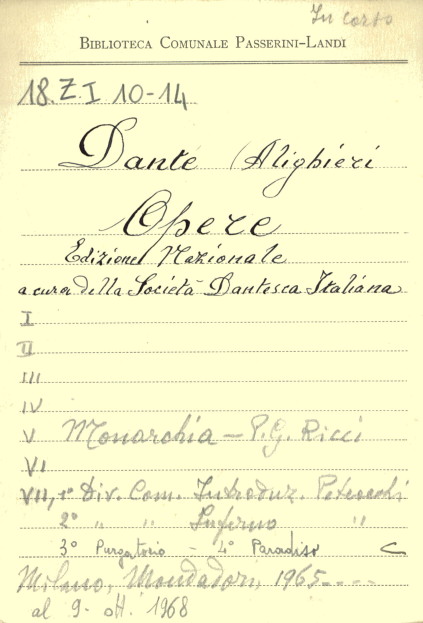 In corso
BIBLIOTECA COMUNALE PASSERINI-LANDI
18. Z I 10-14
Dante Alighieri
Opere
Edizione Nazionale
a cura della Società Dantesca Italiana
I
II
III
IV
V Monarchia – P. G. Ricci
VI
VII, 1º Div. Com. Introduz. Petrocchi
2º " " Inferno "
3º Purgatorio - 4º Paradiso
Milano, Mondadori, 1965----
al 9. ott. 1968